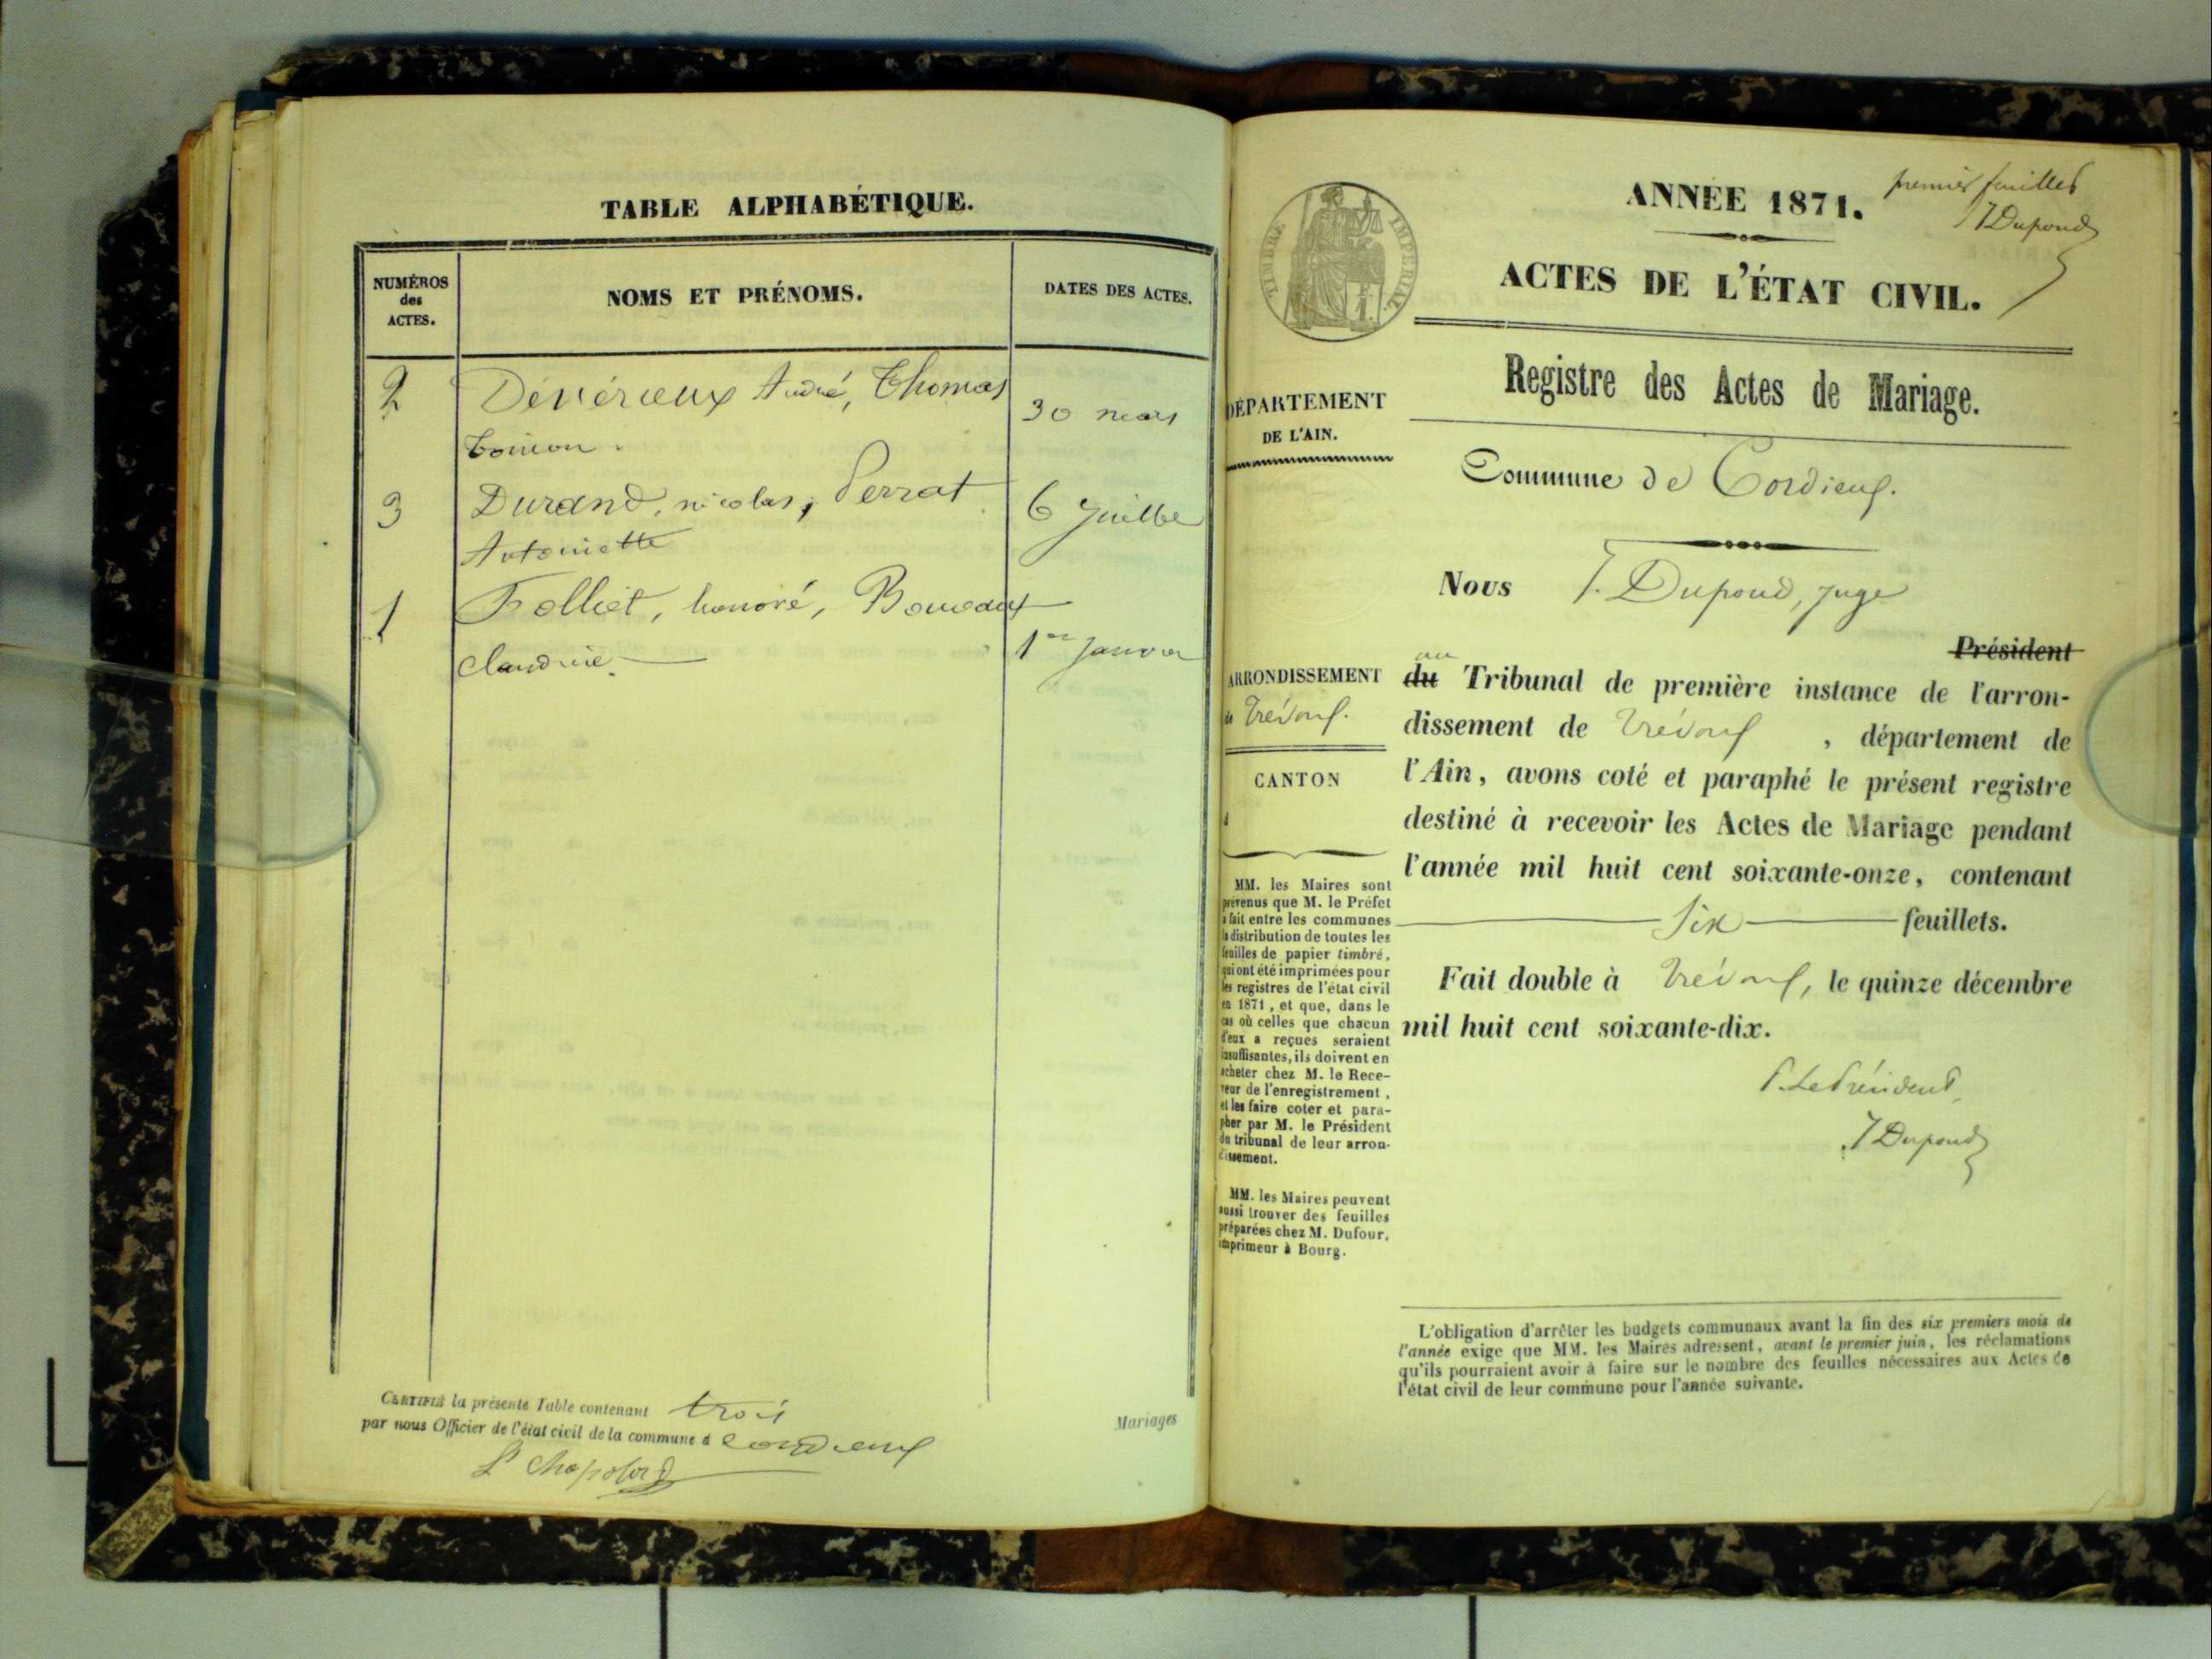 TABLE ALPHABÉTIQUE.
NUMÉROS
des
ACTES.
NOMS ET PRÉNOMS.
DATES DES ACTES.
2 Dévérieux André, Thomas
30 mars
3 Durand, nicolas, Perrat 6 Juillet
Antoinette
1 Folliet, honoré,
Claudine 1er Janvier
CERTIFIÉ la présente Table contenant trois
par nous Officier de l'état civil de la commune d Cordieux
Mariages
ANNÉE 1871.
premier feuillet
J Dupond
TIMBRE IMPÉRIAL
ACTES DE L'ÉTAT CIVIL.
Registre des Actes de Mariage.
DÉPARTEMENT
DE L'AIN.
Commune de Cordieux.
Nous J. Dupond, juge
Président
ARRONDISSEMENT
de Trévoux.
CANTON
d
MM. les Maires sont
prévenus que M. le Préfet
a fait entre les communes
la distribution de toutes les
feuilles de papier timbré,
qui ont été imprimées pour
les registres de l'état civil
en 1871, et que, dans le
cas où celles que chacun
d'eux a reçues seraient
insuffisantes, ils doivent en
acheter chez M. le Rece-
veur de l'enregistrement,
et les faire coter et para-
pher par M. le Président
du tribunal de leur arron-
dissement.
MM. les Maires peuvent
aussi trouver des feuilles
préparées chez M. Dufour,
imprimeur à Bourg.
au
du Tribunal de première instance de l'arron-
dissement de Trévoux, département de
l'Ain, avons coté et paraphé le présent registre
destiné à recevoir les Actes de Mariage pendant
l'année mil huit cent soixante-onze, contenant
Six feuillets.
Fait double à Trévoux, le quinze décembre
mil huit cent soixante-dix.
P. Le Président
J Dupond
L'obligation d'arrêter les budgets communaux avant la fin des six premiers mois de
l'année exige que MM. les Maires adressent, avant le premier juin, les réclamations
qu'ils pourraient avoir à faire sur le nombre des feuilles nécessaires aux Actes de
l'état civil de leur commune pour l'année suivante.